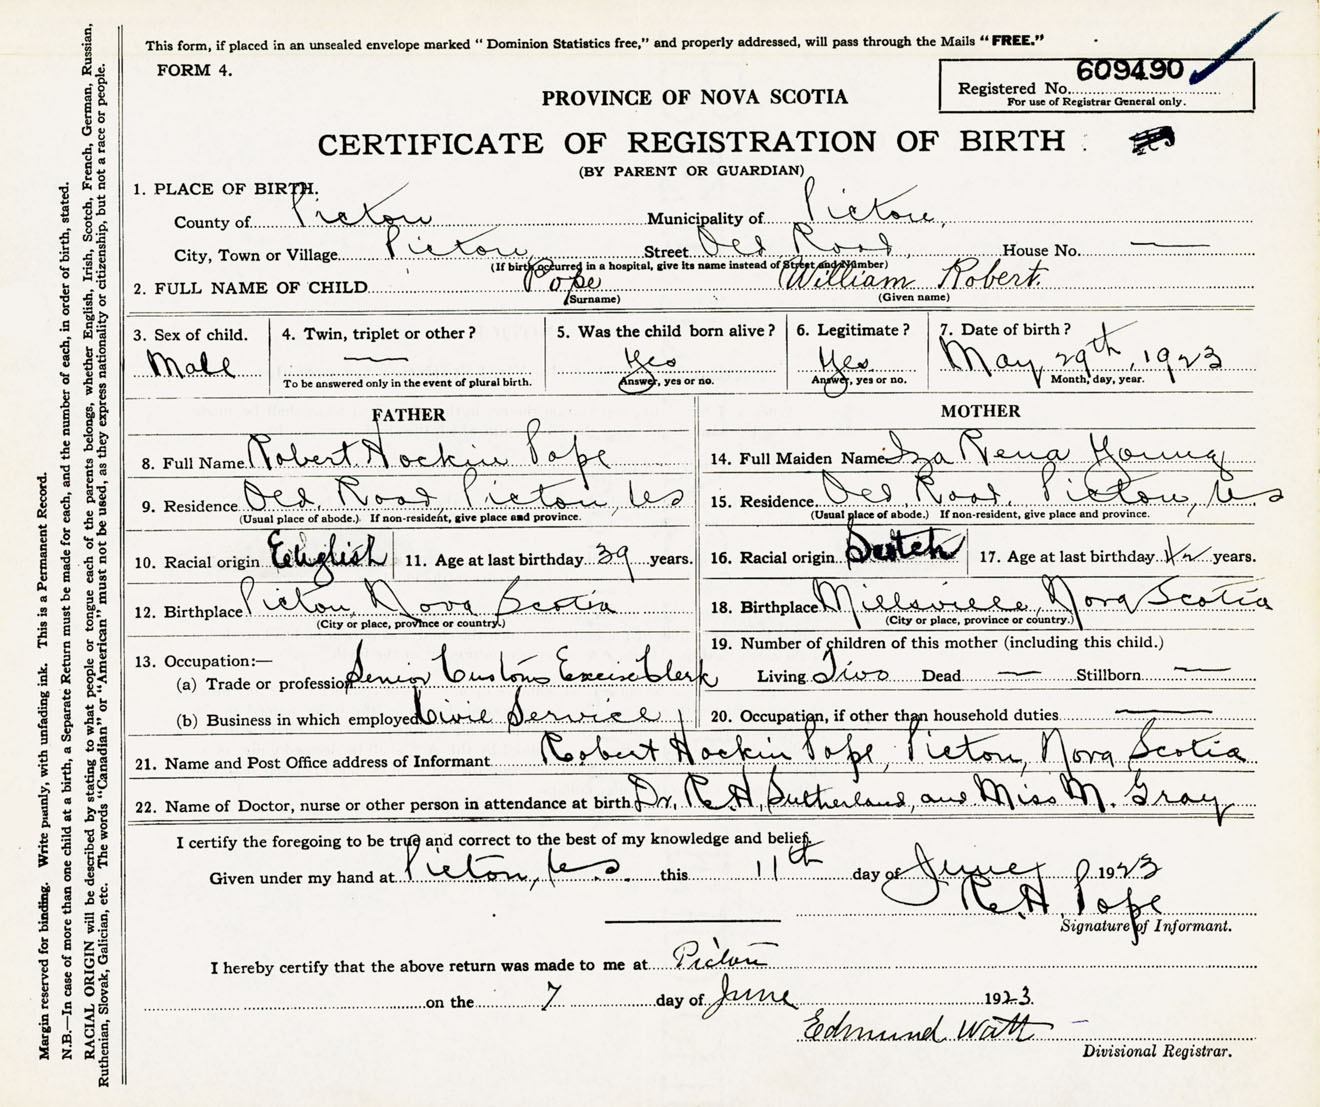 This form, if placed in an unsealed envelope marked “ Dominion Statistics free,” and properly addressed, will pass through the Mails “FREE.”
FORM 4.
609490
Registered No.
For use of Registrar General only.
PROVINCE OF NOVA SCOTIA
CERTIFICATE OF REGISTRATION OF BIRTH
(BY PARENT OR GUARDIAN)
1. PLACE OF BIRTH.
County of Pictou Municipality of Pictou,
City, Town or Village Pictou Street Old Road, House No. —
(If birth occurred in a hospital, give its name instead of Street and Number)
2. FULL NAME OF CHILD Pope William Robert.
(Surname) (Given name)
3. Sex of child. 4. Twin, triplet or other ? 5. Was the child born alive ? 6. Legitimate ? 7. Date of birth ?
Male — Yes Yes May 29th, 1923
To be answered only in the event of plural birth. Answer, yes or no. Answer, yes or no. Month, day, year.
FATHER MOTHER
8. Full Name Robert Hockin Pope 14. Full Maiden Name Rena Young
9. Residence Old Road, Pictou, N.S 15. Residence Old Road, Pictou, N.S
(Usual place of abode.) If non-resident, give place and province. (Usual place of abode.) If non-resident, give place and province.
10. Racial origin English 11. Age at last birthday 39 years. 16. Racial origin Scotch 17. Age at last birthday years.
12. Birthplace Pictou, Nova Scotia 18. Birthplace Millsville, Nova Scotia
(City or place, province or country.) (City or place, province or country.)
13. Occupation:— 19. Number of children of this mother (including this child.)
(a) Trade or profession Senior Customs Excise Clerk Living Two Dead — Stillborn —
(b) Business in which employed Civil Service 20. Occupation, if other than household duties —
21. Name and Post Office address of Informant Robert Hockin Pope, Pictou, Nova Scotia
22. Name of Doctor, nurse or other person in attendance at birth Dr. R.H. Sutherland, and Miss M. Gray
I certify the foregoing to be true and correct to the best of my knowledge and belief.
Given under my hand at Pictou, N.S. this 11th day of June 1923
R.H. Pope
Signature of Informant.
I hereby certify that the above return was made to me at Pictou
on the 7 day of June 1923
Edmund Watt
Divisional Registrar.
Margin reserved for binding. Write plainly, with unfading ink. This is a Permanent Record.
N.B.—In case of more than one child at a birth, a Separate Return must be made for each, and the number of each, in order of birth, stated.
RACIAL ORIGIN will be described by stating to what people or tongue each of the parents belongs, whether English, Irish, Scotch, French, German, Russian,
Ruthenian, Slovak, Galician, etc. The words “Canadian” or “American” must not be used, as they express nationality or citizenship, but not a race or people.